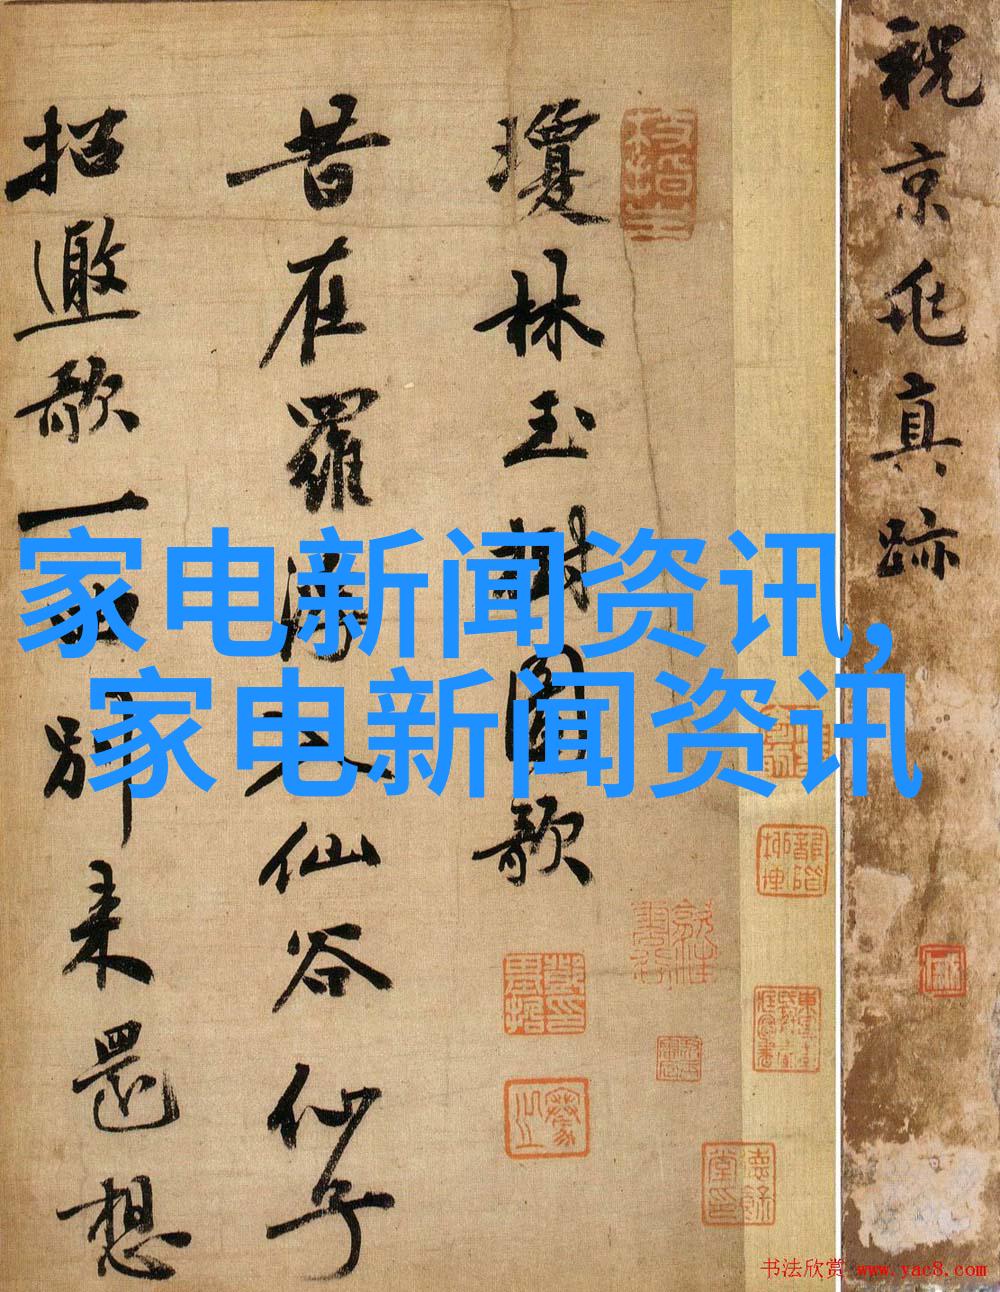 祝京兆真跡
瓊林玉樹圖歌
昔在羅浮
仙谷仙子
招邀歌一
別来還想
家电新闻资讯,
家电新闻资讯
书法欣赏 www.yac8.com